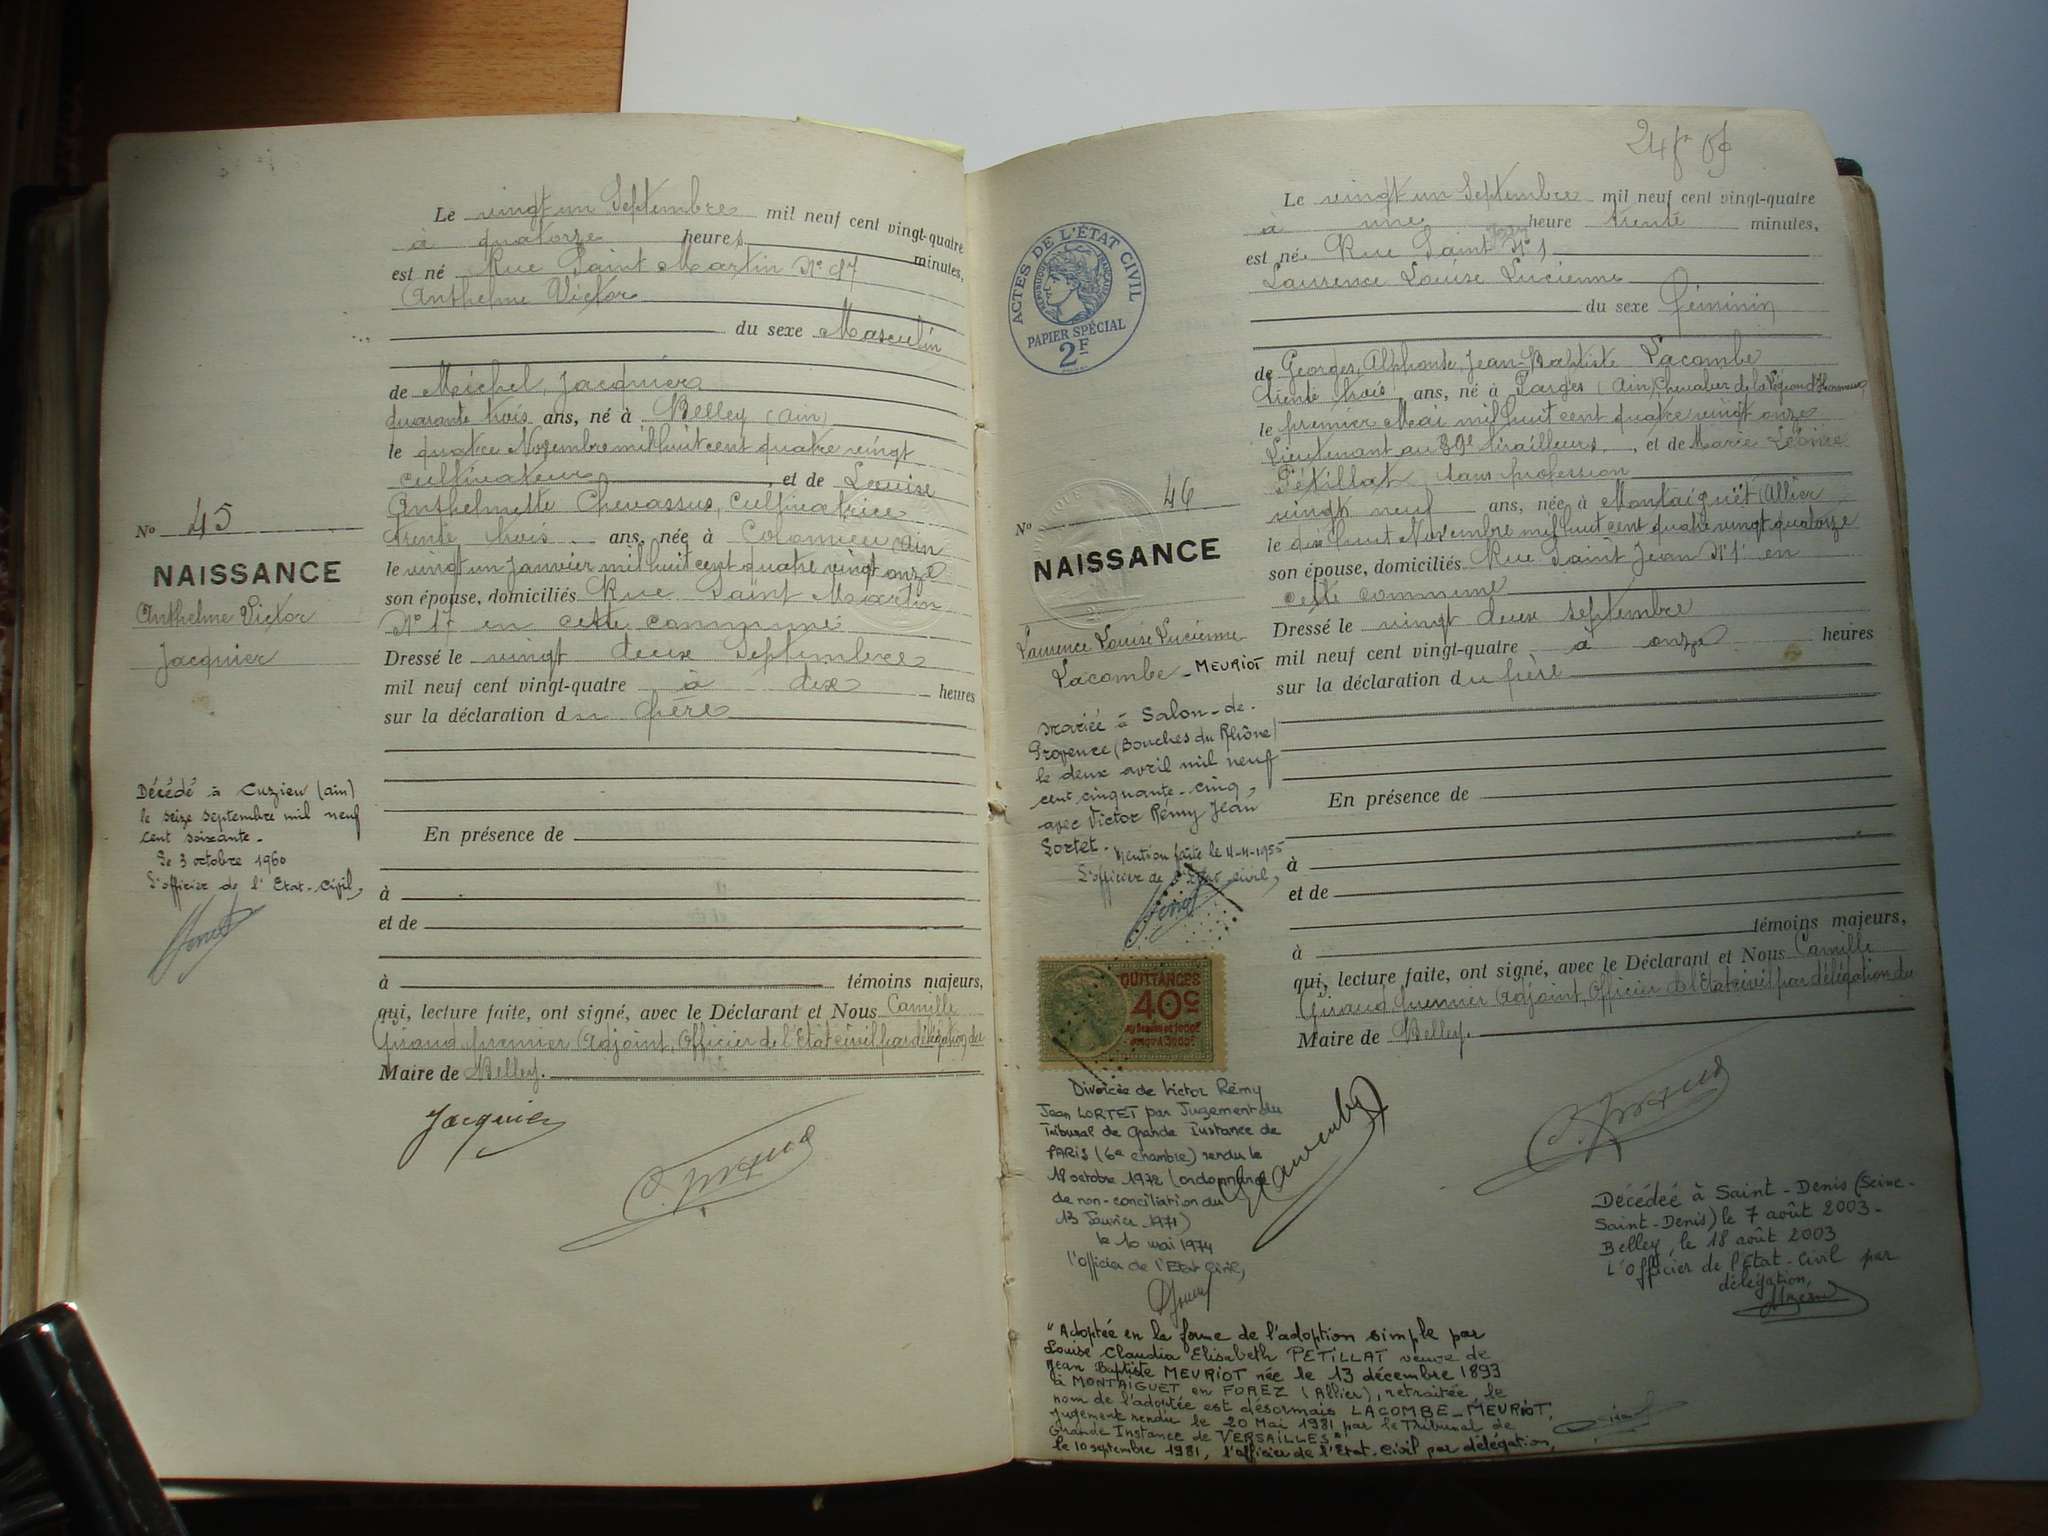 Le vingt un Septembre mil neuf cent vingt-quatre
à quatorze heures minutes,
est né Rue Saint Martin N° 17
Anthelme Victor
du sexe Masculin
de Michel, Jacquier
quarante trois ans, né à Belley (Ain)
le quatre Novembre mil huit cent quatre vingt
cultivateur, et de Louise
Anthelmette Chevassus, cultivatrice
trente trois ans, née à Colomieu (Ain
le vingt un Janvier mil huit cent quatre vingt onze
son épouse, domiciliés Rue Saint Martin
N° 17 en cette commune
Dressé le vingt deux Septembre
mil neuf cent vingt-quatre à dix heures
sur la déclaration du père
En présence de
à
et de
à témoins majeurs,
qui, lecture faite, ont signé, avec le Déclarant et Nous Camille
Giraud premier Adjoint, Officier de l'Etat civil par délégation du
Maire de Belley.
Jacquier
C. Giraud
N° 45
NAISSANCE
Anthelme Victor
Jacquier
Décédé à Cuzieu (ain)
le seize septembre mil neuf
cent soixante.
Le 3 octobre 1960
L'officier de l'Etat-civil,
24 f
ACTES DE L'ÉTAT CIVIL
RÉPUBLIQUE FRANÇAISE
PAPIER SPÉCIAL
2F
Le vingt un Septembre mil neuf cent vingt-quatre
à une heure trente minutes,
est né Rue Saint Jean N° 1
Laurence Louise Lucienne
du sexe féminin
de Georges, Alphonse, Jean-Baptiste Lacombe
trente trois ans, né à Parges (Ain) Chevalier de la Légion d'Honneur
le premier Mai mil huit cent quatre vingt onze
Lieutenant au 39e tirailleurs, et de Marie Léonie
Pétillat sans profession
vingt neuf ans, née à Montaiguët (Allier
le dix huit Novembre mil huit cent quatre vingt quatorze
son épouse, domiciliés Rue Saint Jean N° 1 en
cette commune
Dressé le vingt deux septembre
mil neuf cent vingt-quatre à onze heures
sur la déclaration du père
En présence de
à
et de
à témoins majeurs,
qui, lecture faite, ont signé, avec le Déclarant et Nous Camille
Giraud premier Adjoint, Officier de l'Etat civil par délégation du
Maire de Belley.
Lacombe
C. Giraud
N° 46
NAISSANCE
Laurence Louise Lucienne
Lacombe - MEURIOT
Mariée à Salon-de-
Provence (Bouches du Rhône)
le deux avril mil neuf
cent cinquante-cinq,
avec Victor Rémy Jean
Lortet. Mention faite le 4-4-1955
L'officier de l'Etat-civil,
QUITTANCES
40c
Divorcée de Victor Rémy
Jean LORTET par Jugement du
Tribunal de Grande Instance de
PARIS (6e chambre) rendu le
18 octobre 1972 (ordonnance
de non-conciliation du
13 Janvier 1971)
le 10 mai 1974
l'Officier de l'Etat Civil,
"Adoptée en la forme de l'adoption simple par
Louise Claudia Elisabeth PETILLAT veuve de
Jean Baptiste MEURIOT née le 13 décembre 1893
à MONTAIGUET en FOREZ (Allier), retraitée, le
nom de l'adoptée est désormais LACOMBE-MEURIOT,
Jugement rendu le 20 Mai 1981 par le Tribunal de
Grande Instance de VERSAILLES"
le 10 septembre 1981, l'officier de l'Etat-Civil par délégation,
Décédée à Saint-Denis (Seine-
Saint-Denis) le 7 août 2003-
Belley, le 18 août 2003
L'Officier de l'Etat-Civil par
délégation,